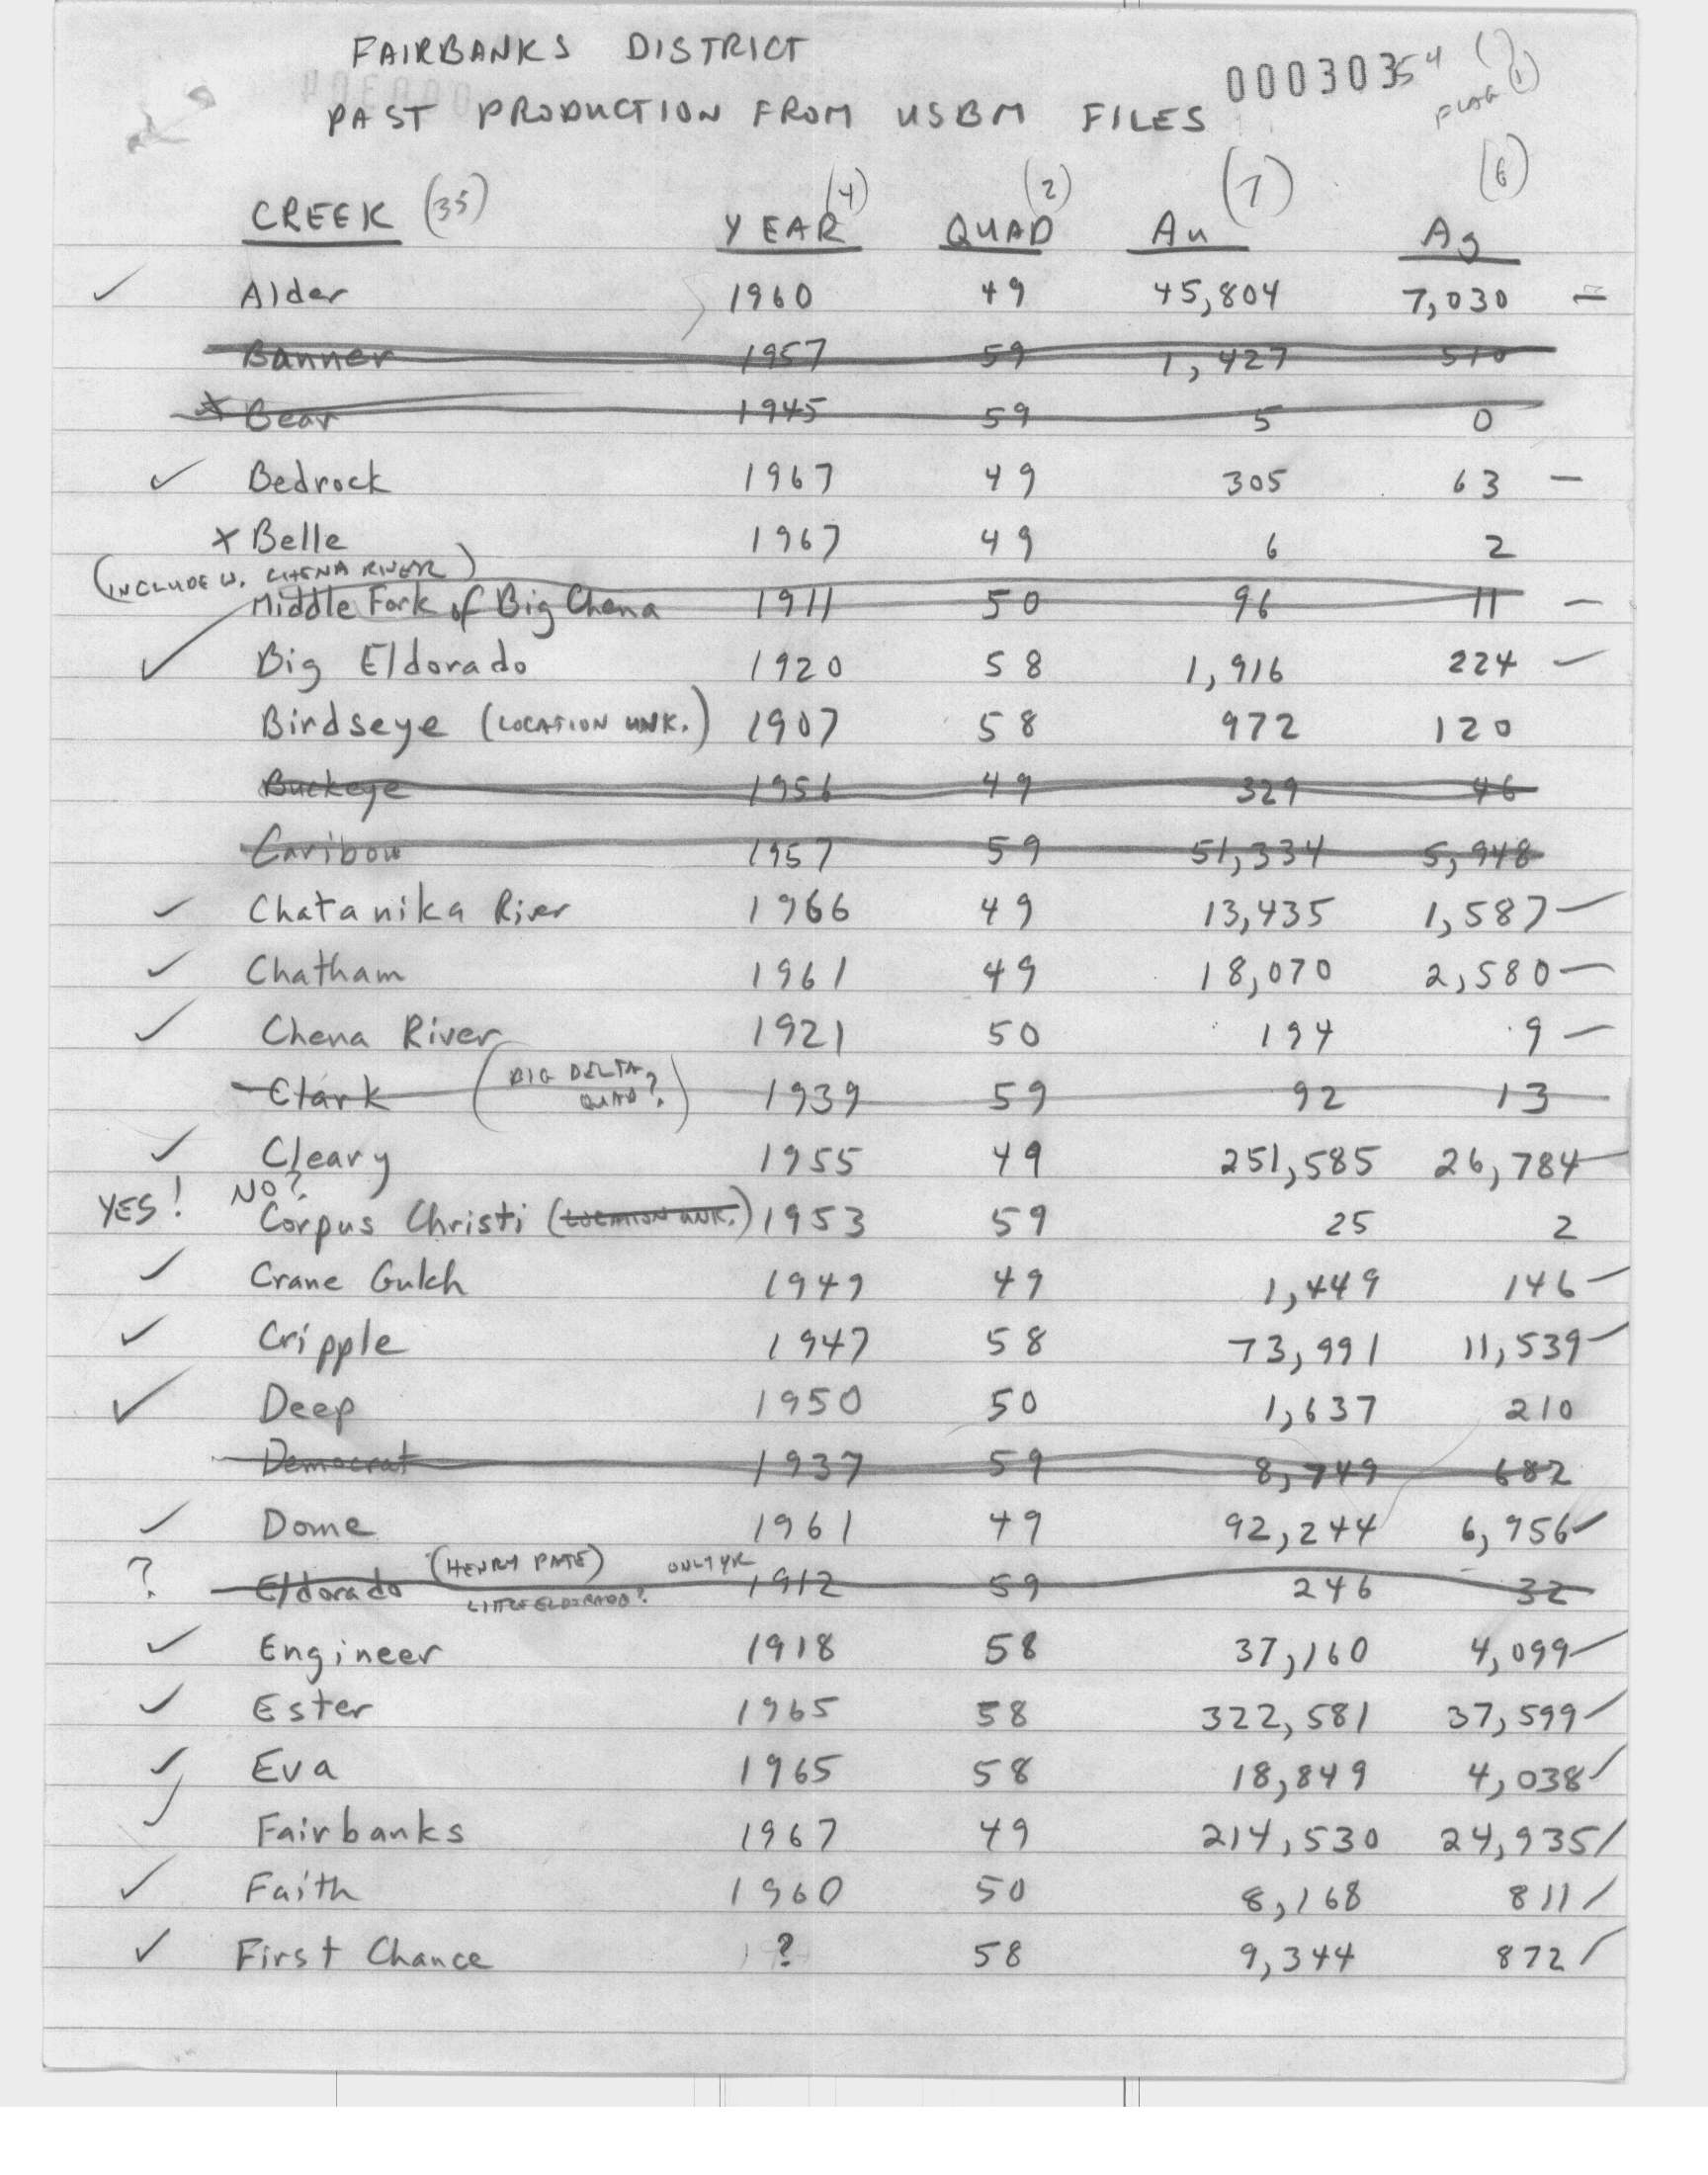 FAIRBANKS DISTRICT
000030354 (1)
PAST PRODUCTION FROM USBM FILES FLAG
CREEK (35) YEAR (4) QUAD (2) Au (7) Ag (6)
✓ Alder 1960 49 45,804 7,030 –
Banner 1957 59 1,427 510
* Bear 1945 59 5 0
✓ Bedrock 1967 49 305 63 –
x Belle 1967 49 6 2
(INCLUDE W. CHENA RIVER)
Middle Fork of Big Chena 1911 50 96 11 –
✓ Big Eldorado 1920 58 1,916 224 –
Birdseye (LOCATION UNK.) 1907 58 972 120
Buckeye 1956 49 329 46
Caribou 1957 59 51,334 5,948
✓ Chatanika River 1966 49 13,435 1,587 –
✓ Chatham 1961 49 18,070 2,580 –
✓ Chena River 1921 50 194 9 –
Clark (BIG DELTA QUAD?) 1939 59 92 13
✓ Cleary 1955 49 251,585 26,784 –
YES! NO?
Corpus Christi (LOCATION UNK.) 1953 59 25 2
✓ Crane Gulch 1949 49 1,449 146 –
✓ Cripple 1947 58 73,991 11,539 –
✓ Deep 1950 50 1,637 210
Democrat 1937 59 8,749 682
✓ Dome 1961 49 92,244 6,956 ✓
? Eldorado (HENRY PATE) ONLY YR 1912 59 246 32
LITTLE ELDORADO?
✓ Engineer 1918 58 37,160 4,099 –
✓ Ester 1965 58 322,581 37,599 ✓
✓ Eva 1965 58 18,849 4,038 ✓
✓ Fairbanks 1967 49 214,530 24,935 /
✓ Faith 1960 50 8,168 811 /
✓ First Chance ? 58 9,344 872 /